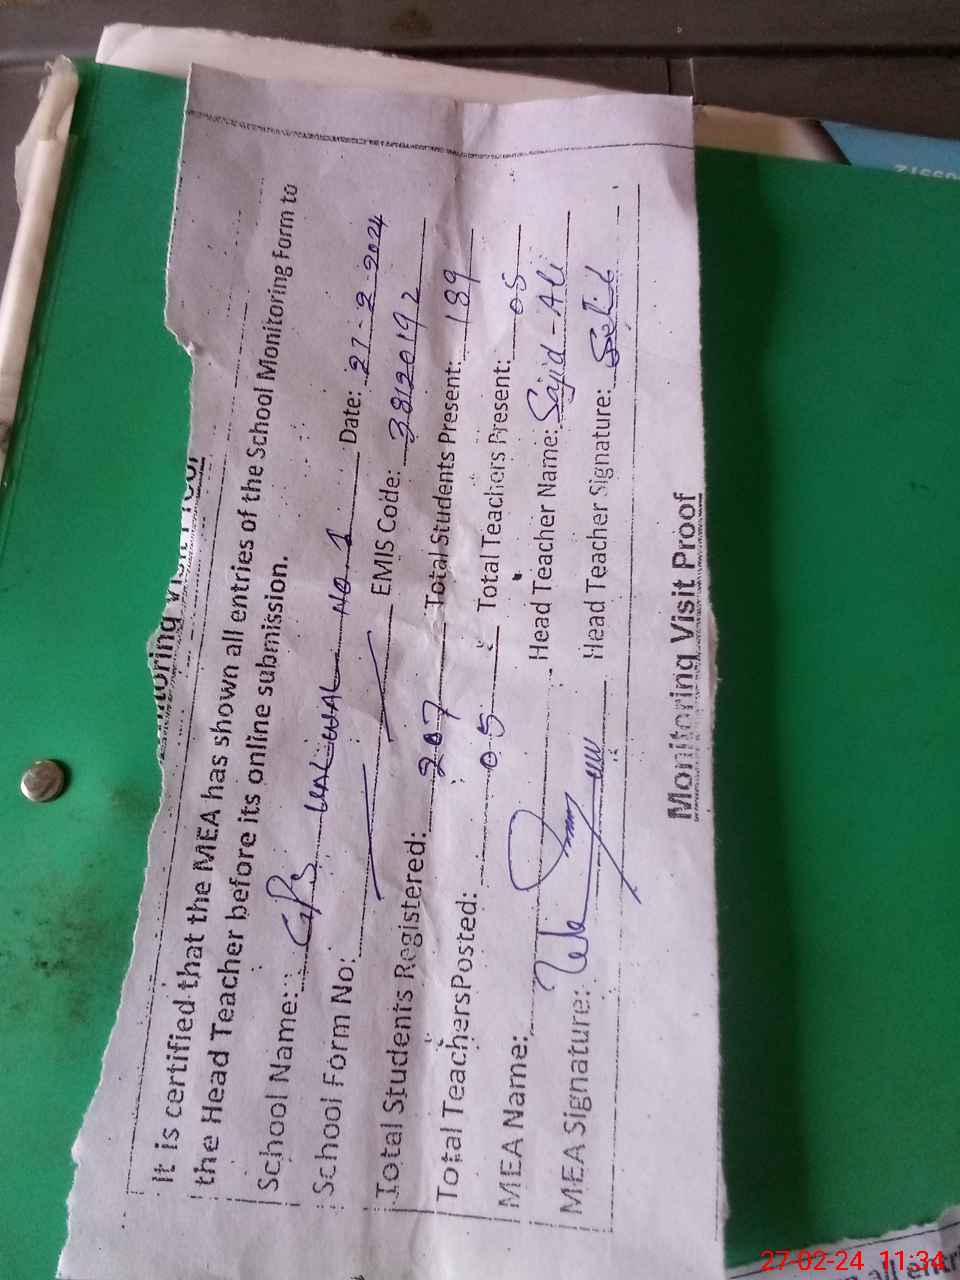 Monitoring Visit Proof
It is certified that the MEA has shown all entries of the School Monitoring Form to
the Head Teacher before its online submission.
School Name: GPS WAL NO 1 Date: 27-2-2024
School Form No: EMIS Code: 38120192
Total Students Registered: 207 Total Students Present: 189
Total TeachersPosted: 05 Total Teachers Present: 05
MEA Name: Head Teacher Name: Sajid-Ali
MEA Signature: Head Teacher Signature:
Monitoring Visit Proof
all entr
27-02-24 11:34